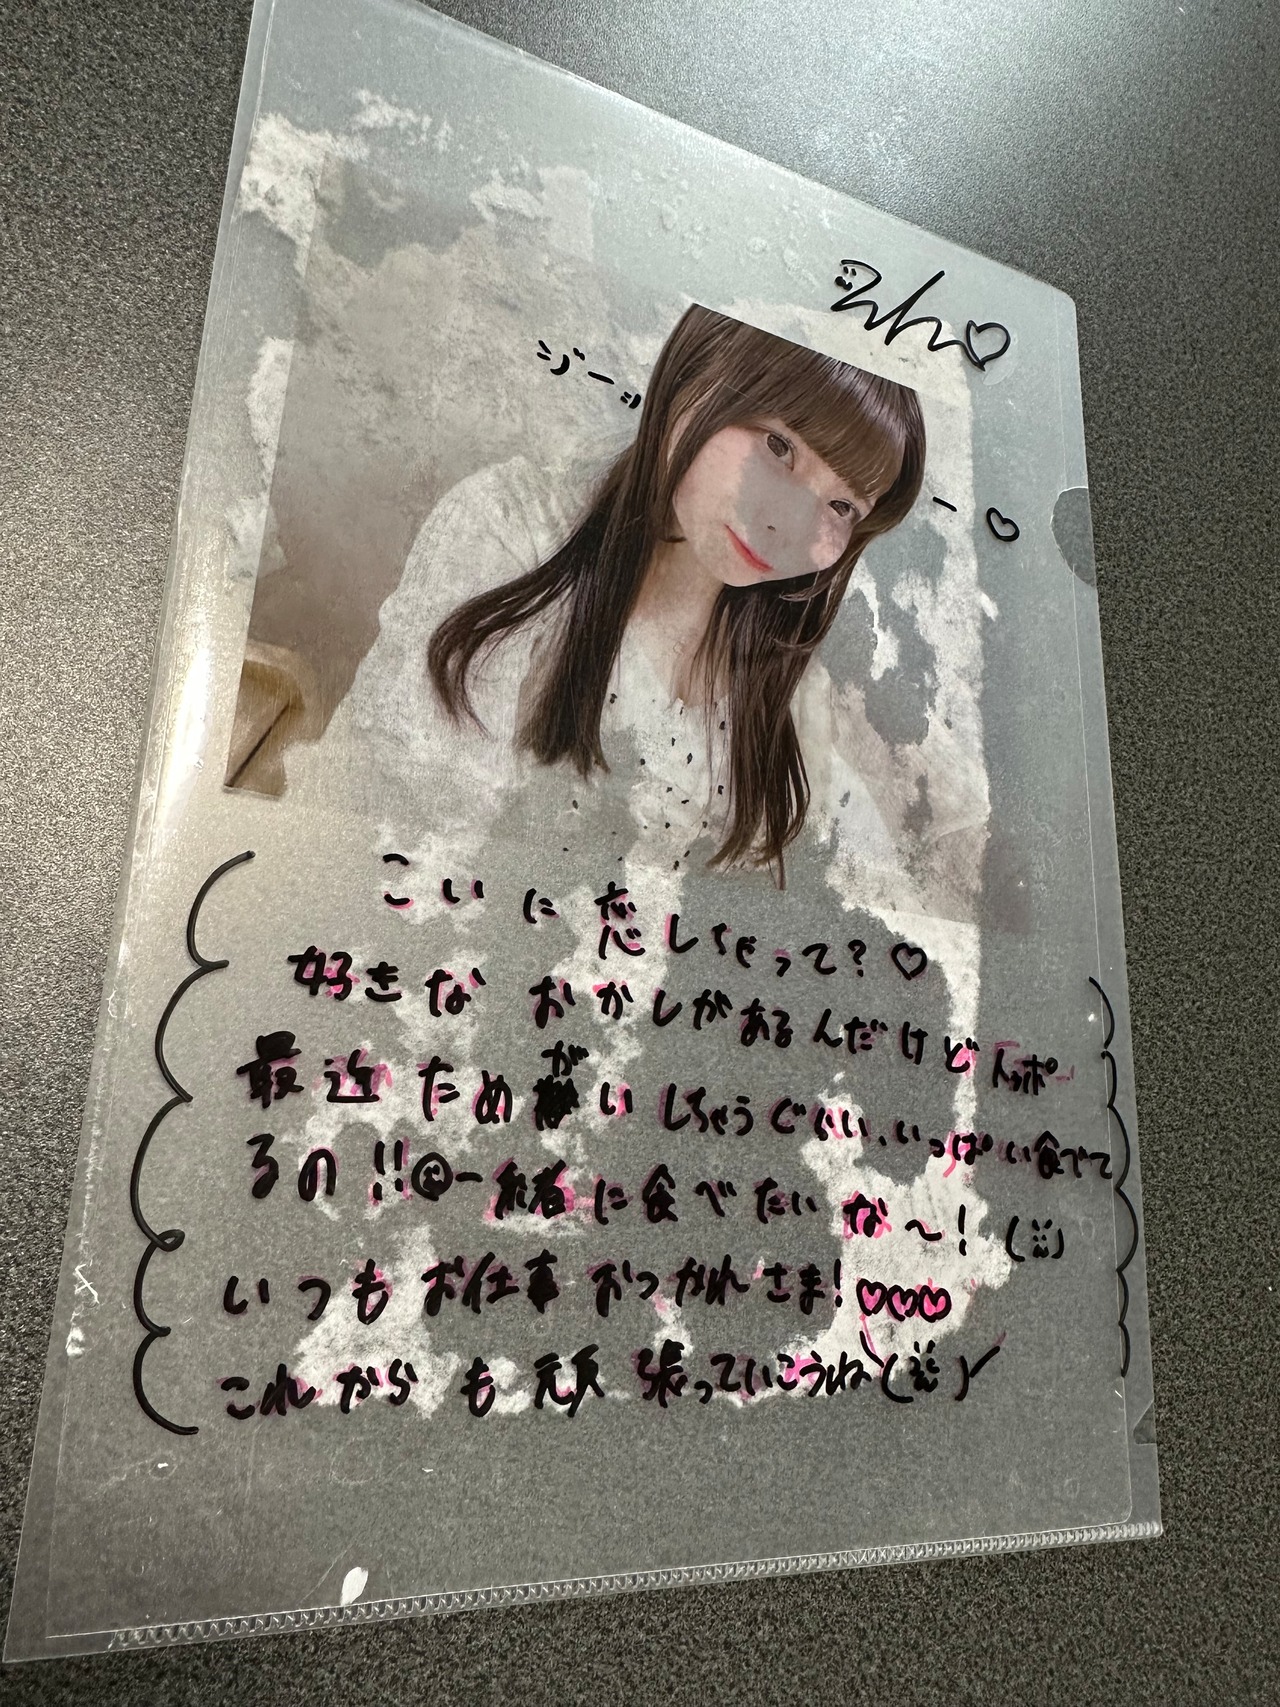 ジーッ
ー♡
こいに恋しちゃって?♡
好きなおかしがあるんだけど
最近ためがいしちゃうぐらい、いっぱい食べて
るの!!一緒に食べたいな〜!
いつもお仕事おつかれさま!♡♡♡
これからも頑張っていこうね